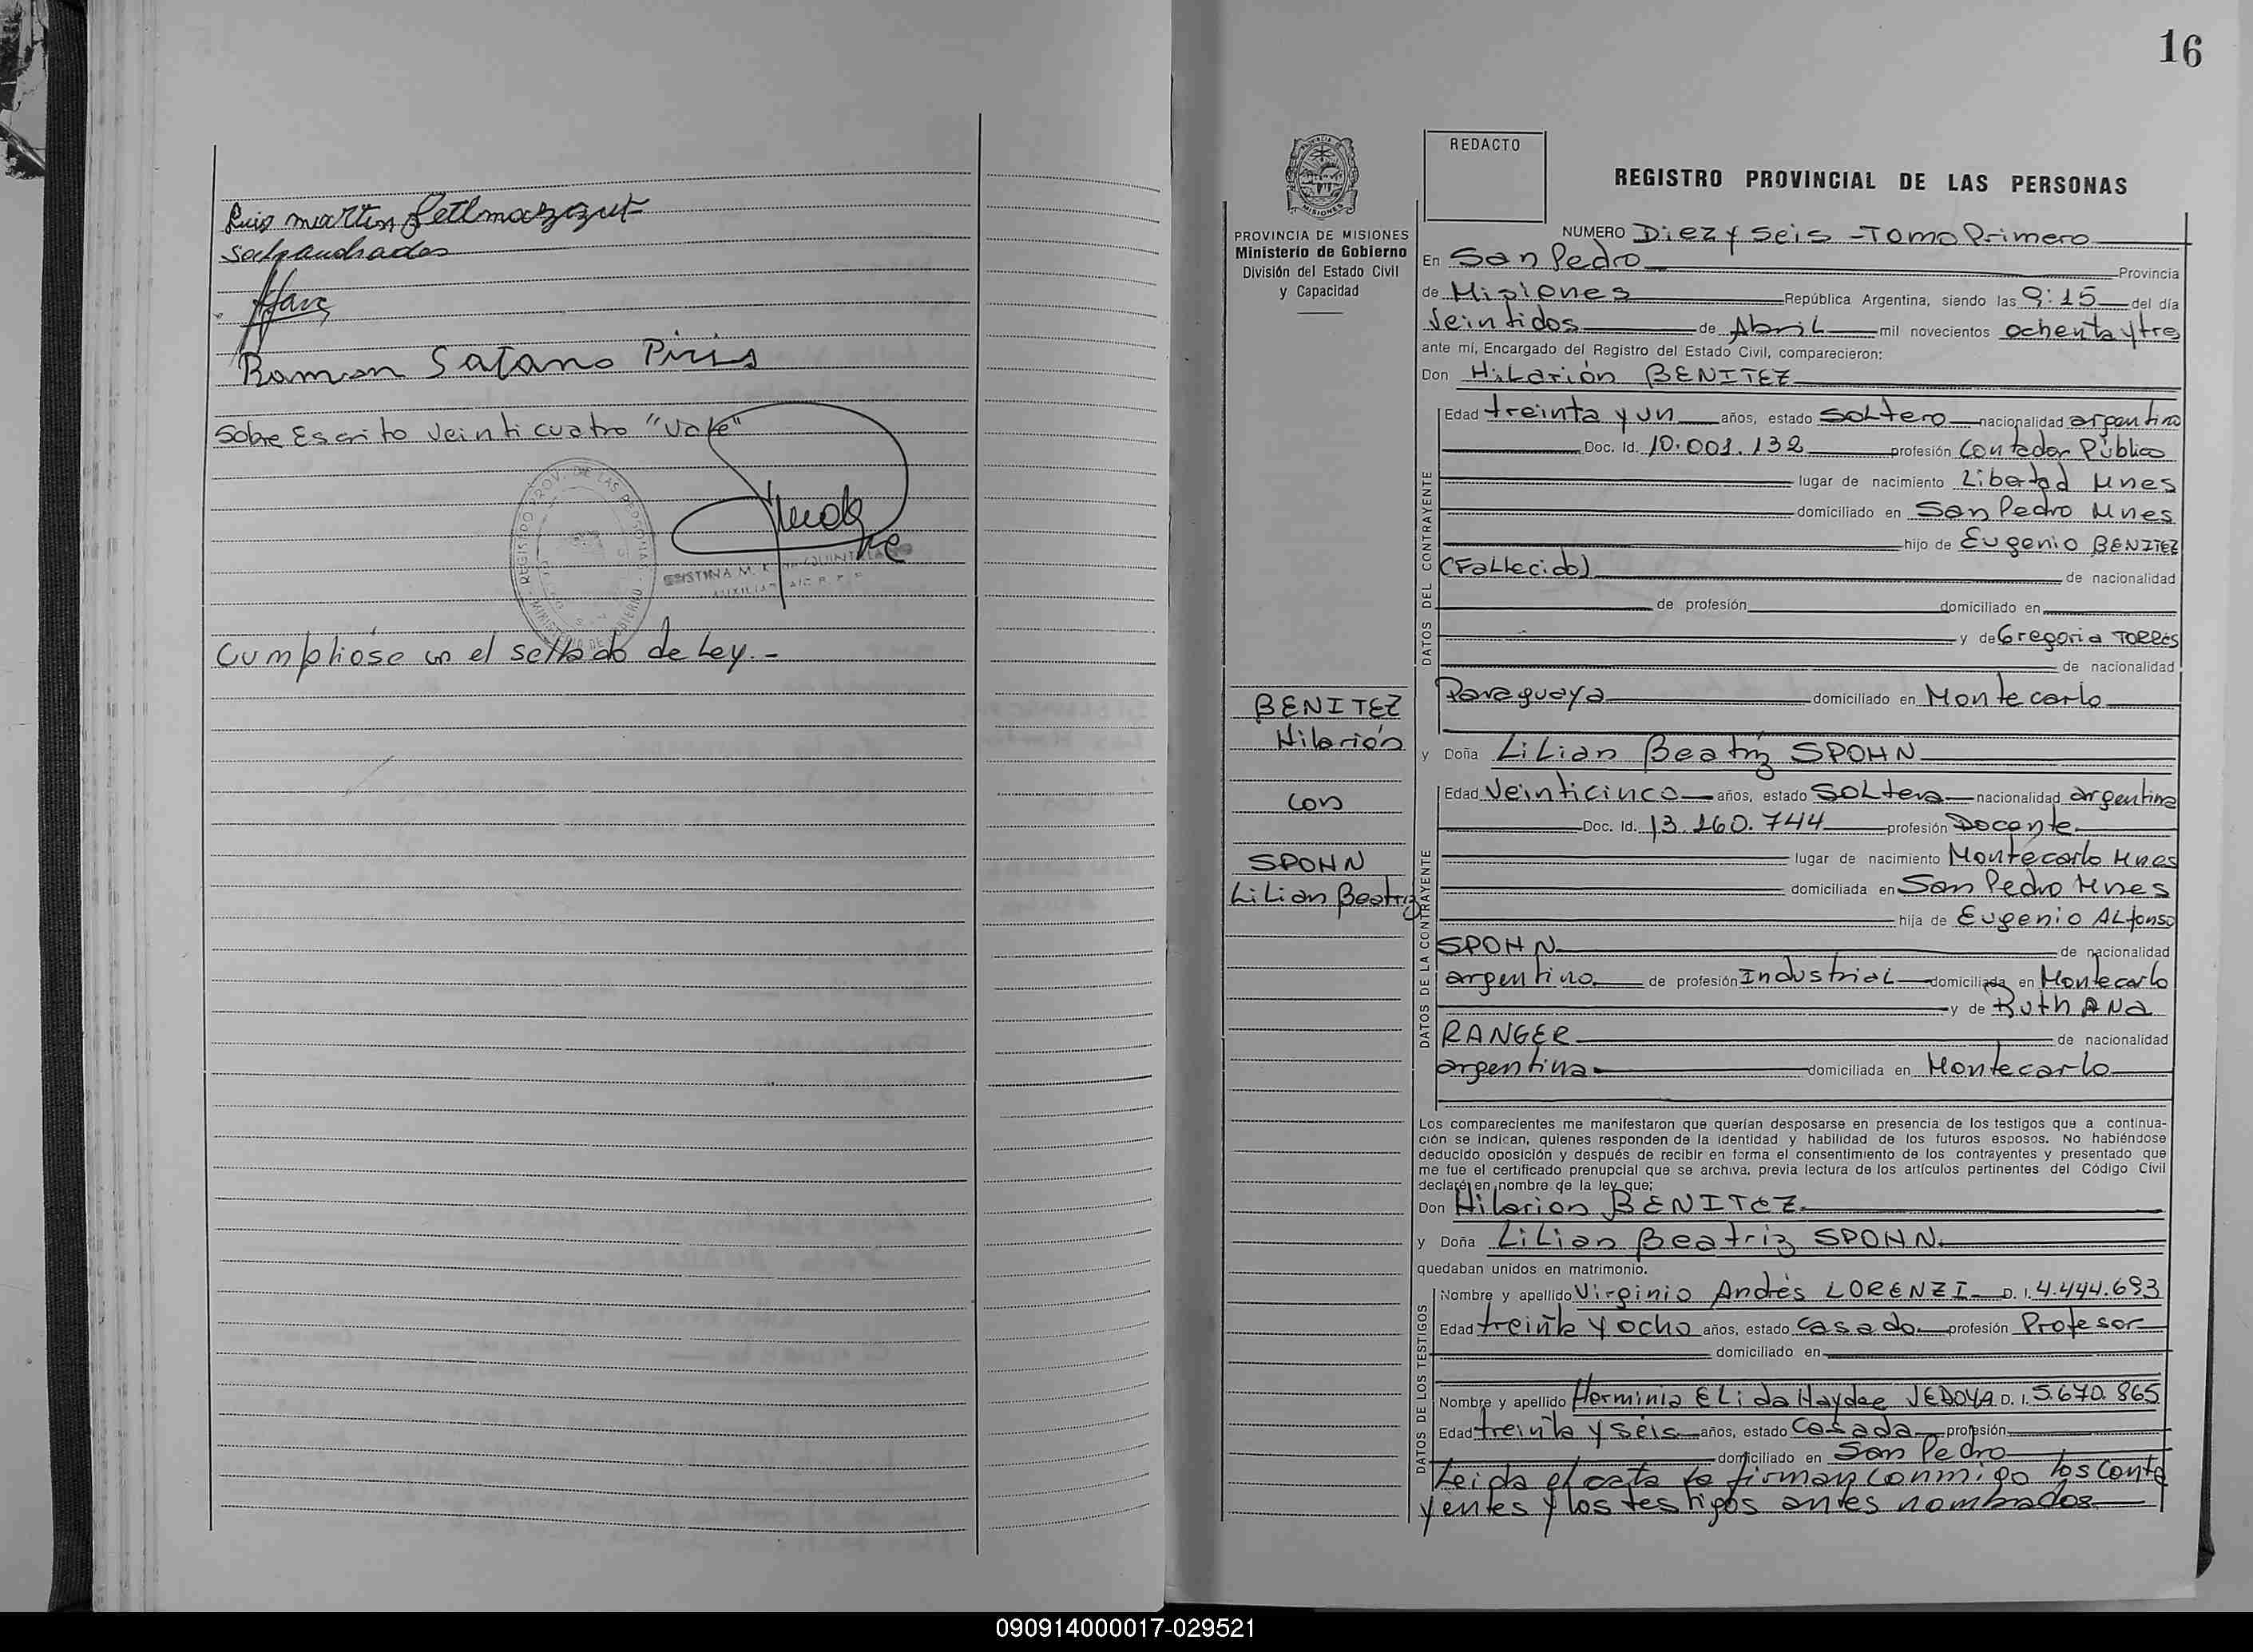 Luis martin
Ramon Satano Piris
Sobre Escrito Veinticuatro "Vale"
REGISTRO PROV. DE LAS PERSONAS
MINISTERIO DE GOBIERNO
Cumpliose con el sellado de Ley.-
16
REDACTO
REGISTRO PROVINCIAL DE LAS PERSONAS
MISIONES
PROVINCIA DE MISIONES
Ministerio de Gobierno
División del Estado Civil
y Capacidad
BENITEZ
Hilarión
con
SPOHN
Lilian Beatriz
NUMERO Diez y seis - Tomo Primero
En San Pedro Provincia
de Misiones República Argentina, siendo las 9:15 del día
Veintidos de Abril mil novecientos ochenta y tres
ante mí, Encargado del Registro del Estado Civil, comparecieron:
Don Hilarión BENITEZ
DATOS DEL CONTRAYENTE
Edad treinta y un años, estado Soltero nacionalidad argentino
Doc. Id. 10.001.132 profesión Contador Público
lugar de nacimiento Libertad Mnes
domiciliado en San Pedro Mnes
hijo de Eugenio BENITEZ
(Fallecido) de nacionalidad
de profesión domiciliado en
y de Gregoria TORRES
de nacionalidad
Paraguaya domiciliado en Montecarlo
y Doña Lilian Beatriz SPOHN
DATOS DE LA CONTRAYENTE
Edad Veinticinco años, estado Soltera nacionalidad argentina
Doc. Id. 13.160.744 profesión Docente
lugar de nacimiento Montecarlo Mnes
domiciliada en San Pedro Mnes
hija de Eugenio Alfonso
SPOHN de nacionalidad
argentino de profesión Industrial domiciliada en Montecarlo
y de Ruth Ana
RANGER de nacionalidad
argentina domiciliada en Montecarlo
Los comparecientes me manifestaron que querían desposarse en presencia de los testigos que a continua-
ción se indican, quienes responden de la identidad y habilidad de los futuros esposos. No habiéndose
deducido oposición y después de recibir en forma el consentimiento de los contrayentes y presentado que
me fue el certificado prenupcial que se archiva, previa lectura de los artículos pertinentes del Código Civil
declaré en nombre de la ley que:
Don Hilarion BENITEZ
y Doña Lilian Beatriz SPOHN
quedaban unidos en matrimonio.
DATOS DE LOS TESTIGOS
Nombre y apellido Virginio Andrés LORENZI D. I. 4.444.693
Edad treinta y ocho años, estado casado profesión Profesor
domiciliado en
Nombre y apellido Herminia Elida Haydee JEDOYA D. I. 5.670.865
Edad treinta y séis años, estado casada profesión
domiciliado en San Pedro
Leida el acta la firman conmigo los contra
yentes y los testigos antes nombrados
090914000017-029521